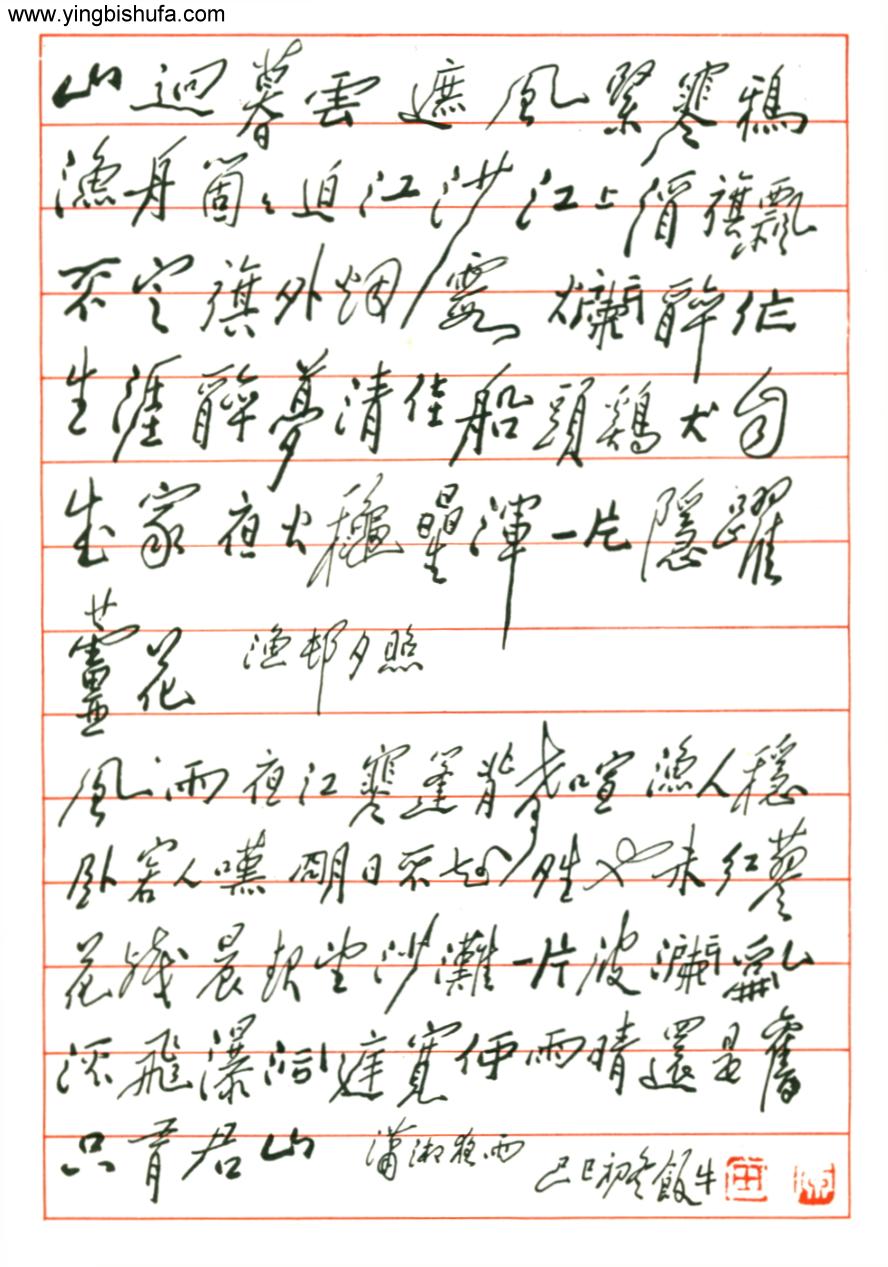 www.yingbishufa.com
山迥暮雲遮風緊寒鴉
漁舟箇々迫江沙江上酒旗飄
不定旗外烟霞爛醉作
生涯醉夢清佳船頭鷄犬自
成家夜火穐星渾一片隱躍
蘆花 漁邨夕照
風雨夜江寒篷背聲喧漁人穩
卧客人嘆明日不知晴也未紅蓼
花殘晨起望沙灘一片波瀾亂
流飛瀑洞庭寬雨晴還是舊
只有君山 瀟湘夜雨 己巳初冬飯牛